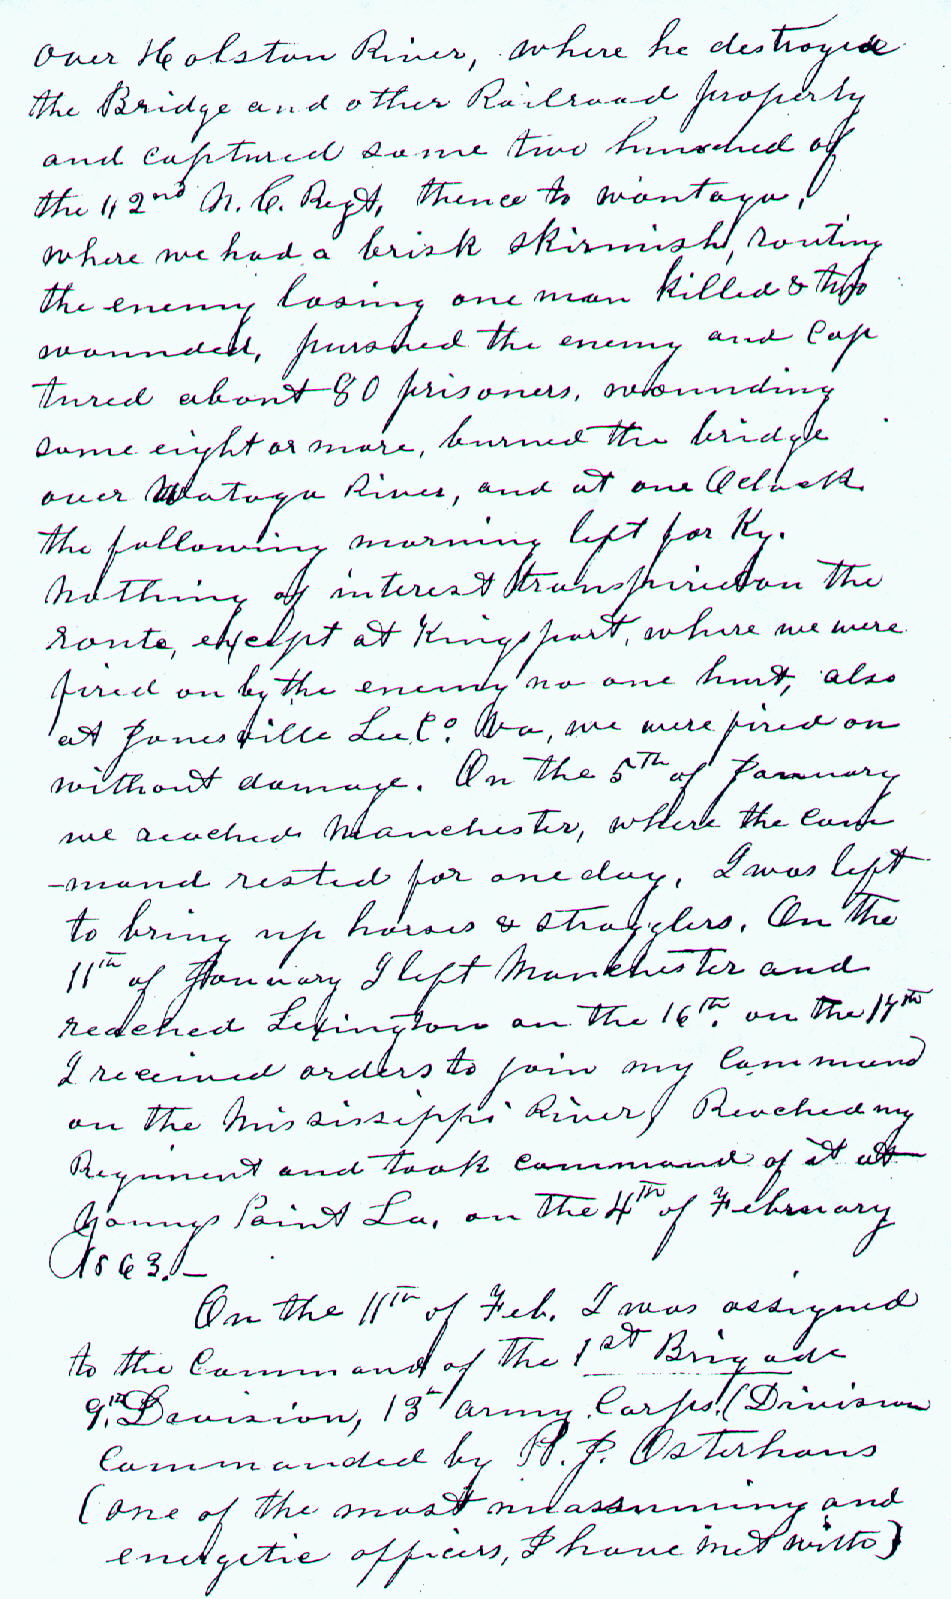 over Holston River, where he destroyed
the Bridge and other Railroad property
and captured some two hundred of
the 62nd N. C. Regt, thence to Wantaga,
where we had a brisk skirmish, routing
the enemy losing one man killed & two
wounded, pursued the enemy and cap
tured about 80 prisoners, wounding
some eight or more, burned the bridge
over Watoga River, and at one Oclock
the following morning left for Ky.
Nothing of interest transpired on the
route, except at Kingsport, where we were
fired on by the enemy no one hurt, also
at Jonesville Lee Co. Va, we were fired on
without damage. On the 5th of January
we reached Manchester, where the com
-mand rested for one day, I was left
to bring up horses & stragglers. On the
11th of January I left Manchester and
reached Lexington on the 16th. on the 17th
I received orders to join my Command
on the Mississippi River, Reached my
Regiment and took command of it at
Youngs Point La, on the 4th of February
1863.—
On the 11th of Feb. I was assigned
to the Command of the 1st Brigade
9th Division, 13th Army Corps, (Division
Commanded by P. J. Osterhaus
(one of the most unassuming and
energetic officers, I have met with)